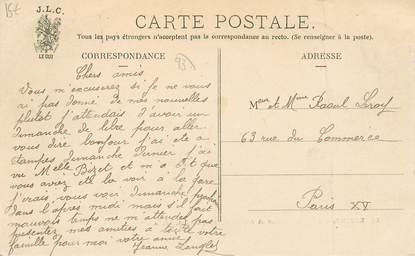 J.L.C.
LE GUI
CARTE POSTALE.
Tous les pays étrangers n'acceptent pas la correspondance au recto. (Se renseigner à la poste).
CORRESPONDANCE
ADRESSE
Chers amis
Vous m'excuserez si je ne vous
ai pas donné de mes nouvelles
plutot j'attendais d'avoir un
dimanche de libre pour aller
vous dire bonjour j'ai été a
Etampes dimanche dernier j'ai
vu Melle Bizet et m'a dit que
vous aviez été la voir à la gare
j'irais vous voir dimanche prochain
dans l'après midi mais s'il fait
mauvais temps ne m'attendez pas
présenter mes amitiés a toute votre
famille pour moi votre amie
Jeanne
Mr et Mme Raoul Leroy
63 rue du Commerce
Paris XV